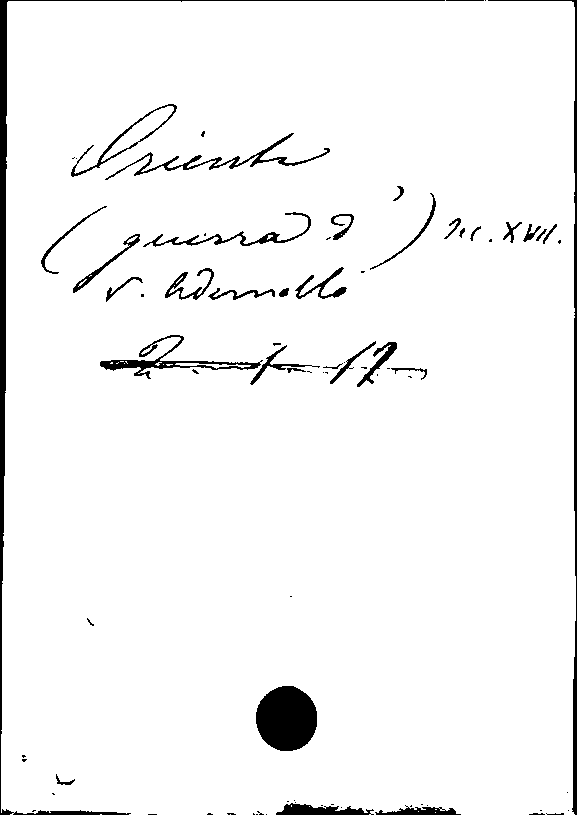 Oriente
(guerra d') sec. XVII.
v. Ademollo
2. 1. 17